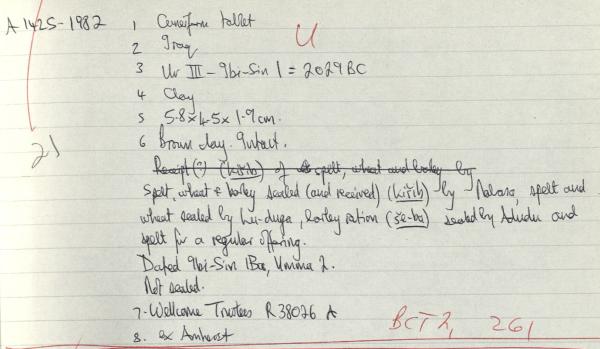 A 1425-1982 1 Cuneiform tablet
U
2 Iraq
3 Ur III - Ibi-Sin 1 = 2029 BC
4 Clay
5 5.8 x 4.5 x 1.9 cm.
21
6 Brown clay. Intact.
Receipt (?) (kišib) of spelt, wheat and barley by
Spelt, wheat & barley sealed (and received) (kišib) by spelt and
wheat sealed by Lu-duga, barley ration (še-ba) sealed by Adudu and
spelt for a regular offering.
Dated Ibi-Sin 1 Umma 2.
Not sealed.
7. Wellcome Trustees R 38026 A
BCT 2, 261
8. ex Amherst